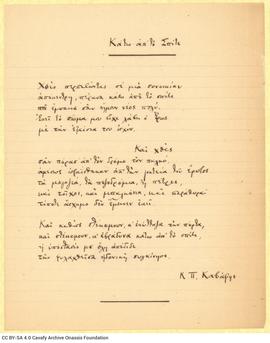 Κάτω απ' το Σπίτι
Χθες περπατώντας σε μια συνοικία
απόκεντρη, πέρασα κάτω από το σπίτι
που έμπαινα σαν ήμουν νέος πολύ.
Εκεί το σώμα μου είχε λάβει ο Έρως
με την εξαίσια του ισχύν.
Και χθες
σαν πέρασ' απ' τον δρόμο τον παληό,
αμέσως ωραΐσθηκαν απ' την γοητεία του έρωτος
τα μαγαζιά, τα πεζοδρόμια, η πέτρες,
και τοίχοι, και μπαλκόνια, και παράθυρα·
τίποτε άσχημο δεν έμεινεν εκεί.
Και καθώς στέκομουν, κ' εκύτταζα την πόρτα,
και στέκομουν, κ' εβράδυνα κάτω απ' το σπίτι,
η υπόστασίς μου όλη απέδιδε
την φυλαχθείσα ηδονική συγκίνησι.
Κ. Π. Καβάφης
CC BY-SA 4.0 Cavafy Archive Onassis Foundation